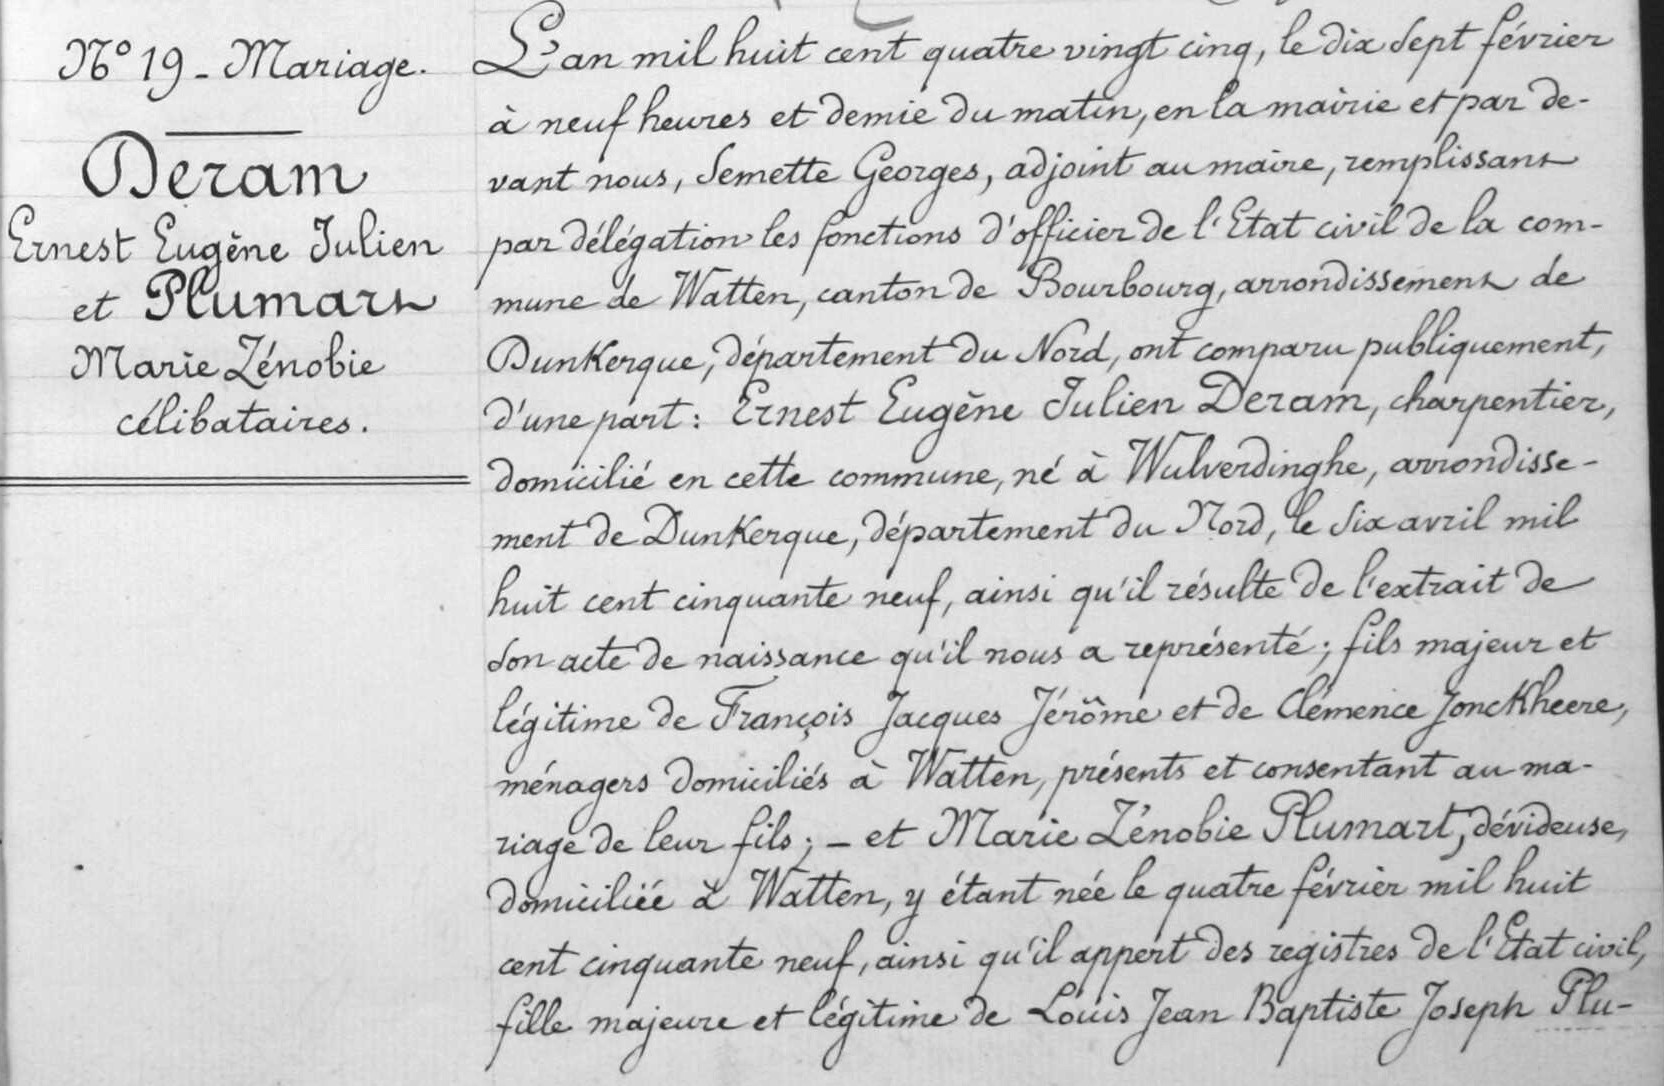 N° 19 - Mariage.
Deram
Ernest Eugène Julien
et Plumart
Marie Zénobie
célibataires.
L'an mil huit cent quatre vingt cinq, le dix sept février
à neuf heures et demie du matin, en la mairie et par de-
vant nous, Semette Georges, adjoint au maire, remplissant
par délégation les fonctions d'officier de l'Etat civil de la com-
mune de Watten, canton de Bourbourg, arrondissement de
Dunkerque, département du Nord, ont comparu publiquement,
d'une part : Ernest Eugène Julien Deram, charpentier,
domicilié en cette commune, né à Wulverdinghe, arrondisse-
ment de Dunkerque, département du Nord, le six avril mil
huit cent cinquante neuf, ainsi qu'il résulte de l'extrait de
son acte de naissance qu'il nous a représenté ; fils majeur et
légitime de François Jacques Jérôme et de Clémence Jonckheere,
ménagers domiciliés à Watten, présents et consentant au ma-
riage de leur fils ; - et Marie Zénobie Plumart, dévideuse,
domiciliée à Watten, y étant née le quatre février mil huit
cent cinquante neuf, ainsi qu'il appert des registres de l'Etat civil,
fille majeure et légitime de Louis Jean Baptiste Joseph Plu-